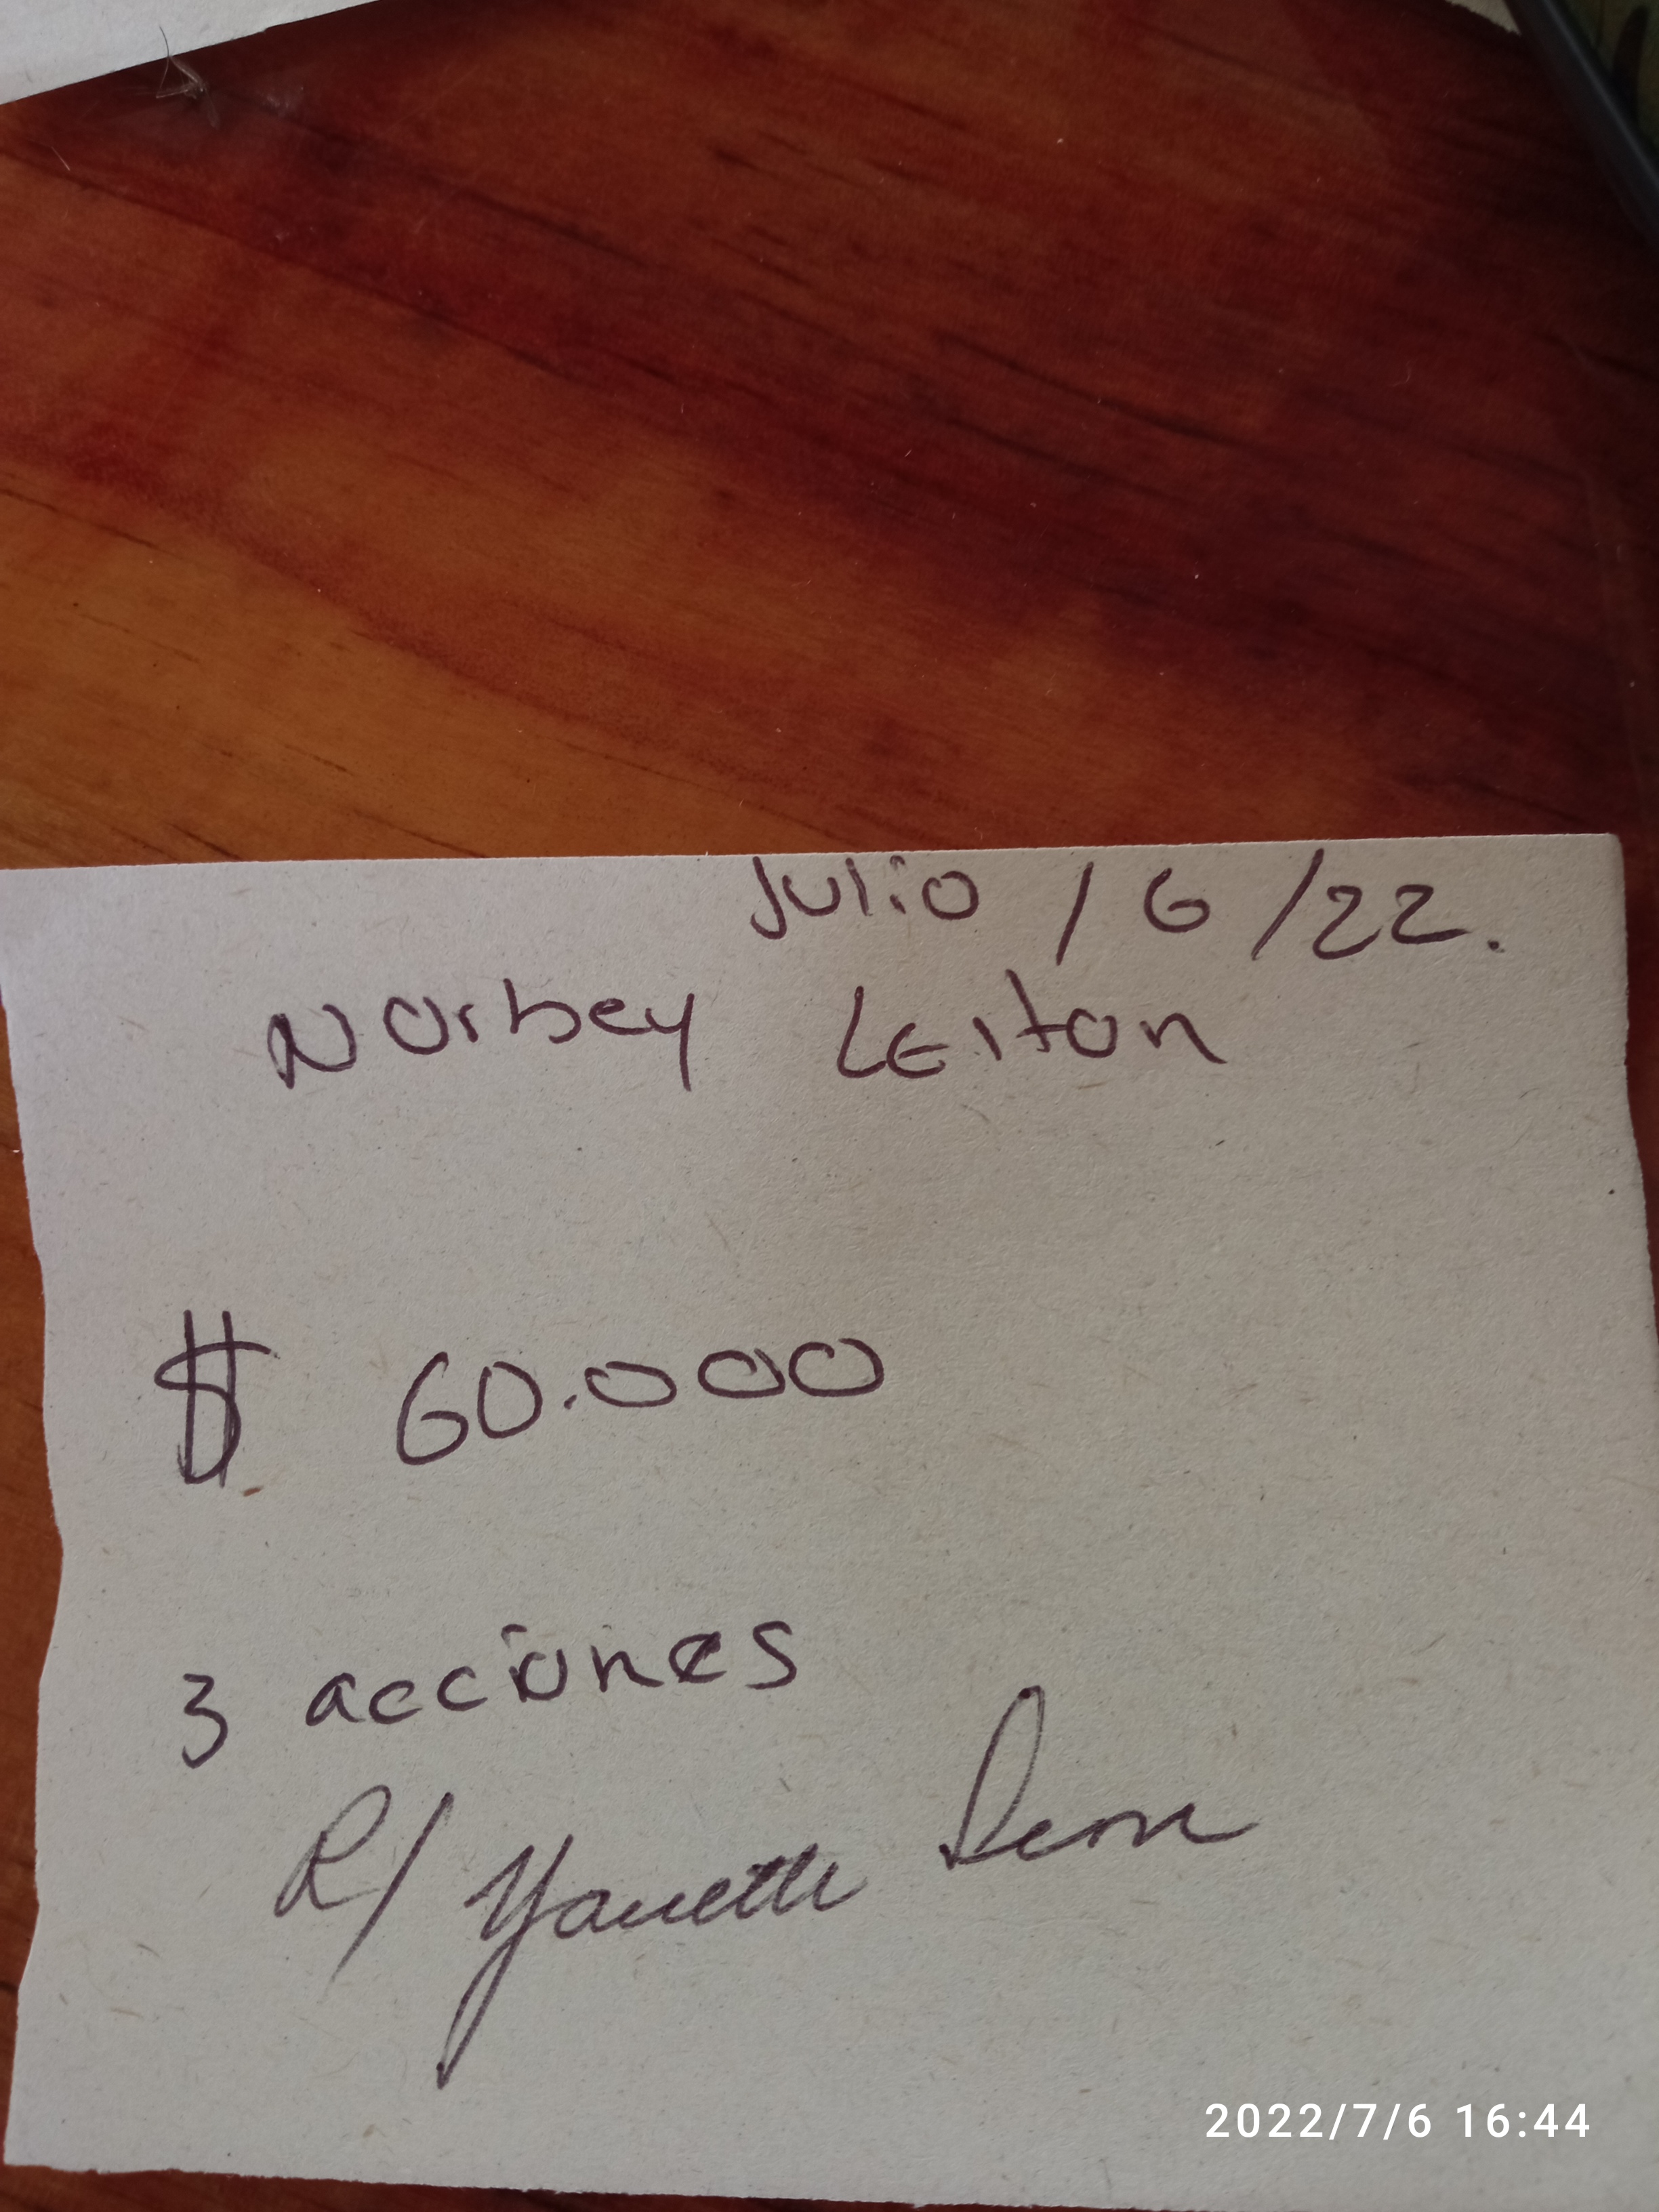 Julio / 6 / 22.
Norbey Leiton
$ 60.000
3 acciones
R/ Yanette
2022/7/6 16:44